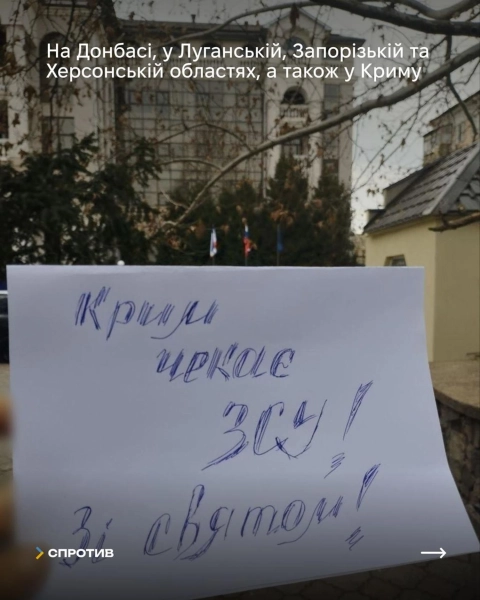 На Донбасі, у Луганській, Запорізькій та
Херсонській областях, а також у Криму
Крим
чекає
ЗСУ!
Зі святом!
СПРОТИВ